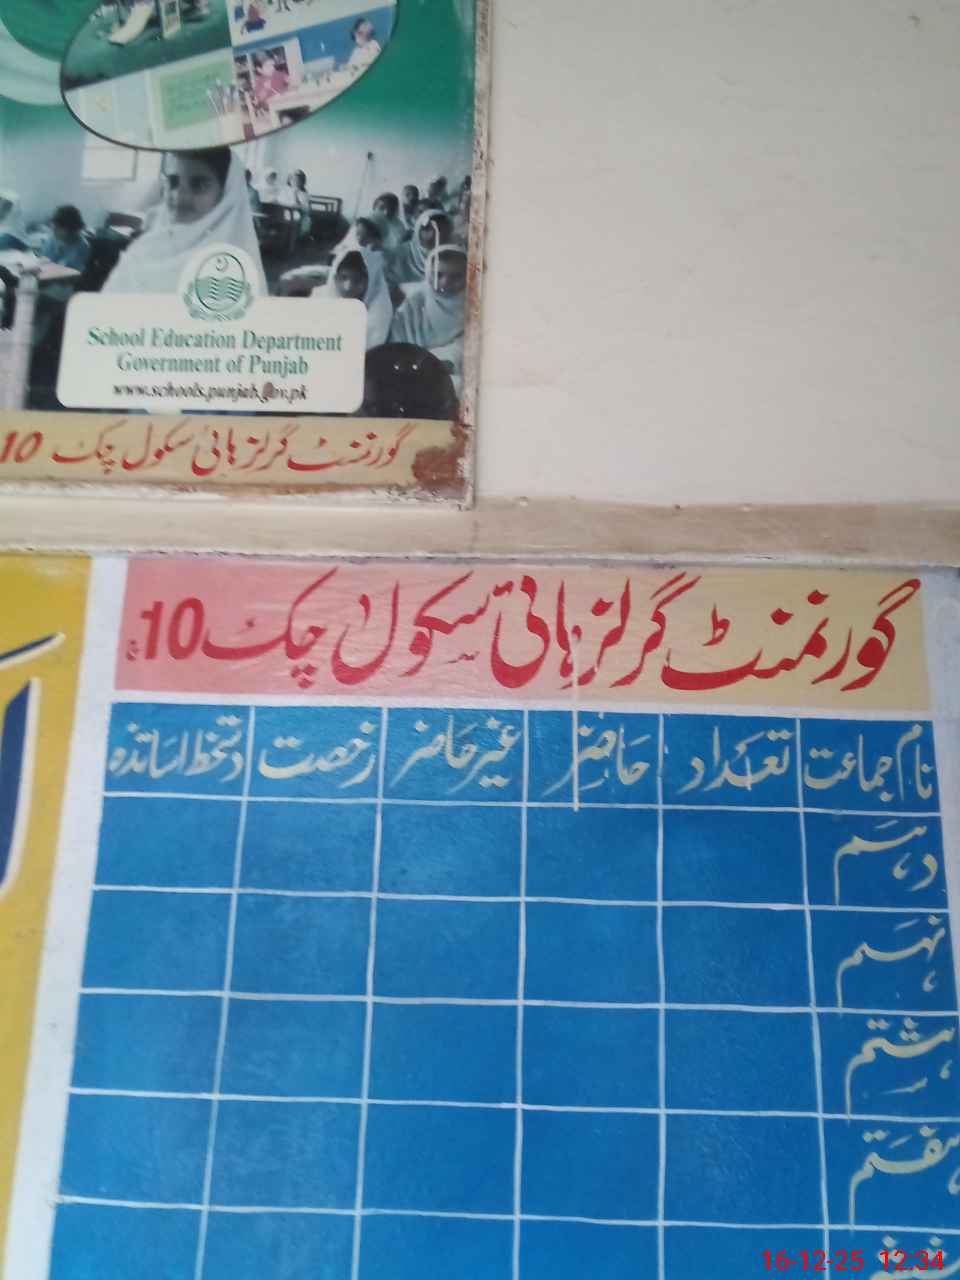 School Education Department
Government of Punjab
www.schools.punjab.gov.pk
گورنمنٹ گرلز ہائی سکول چک 10
گورنمنٹ گرلز ہائی سکول چک 10
نام جماعت تعداد حاضر غیر حاضر رخصت دستخط اساتذہ
دہم
نہم
ہشتم
ہفتم
16-12-25 12:34